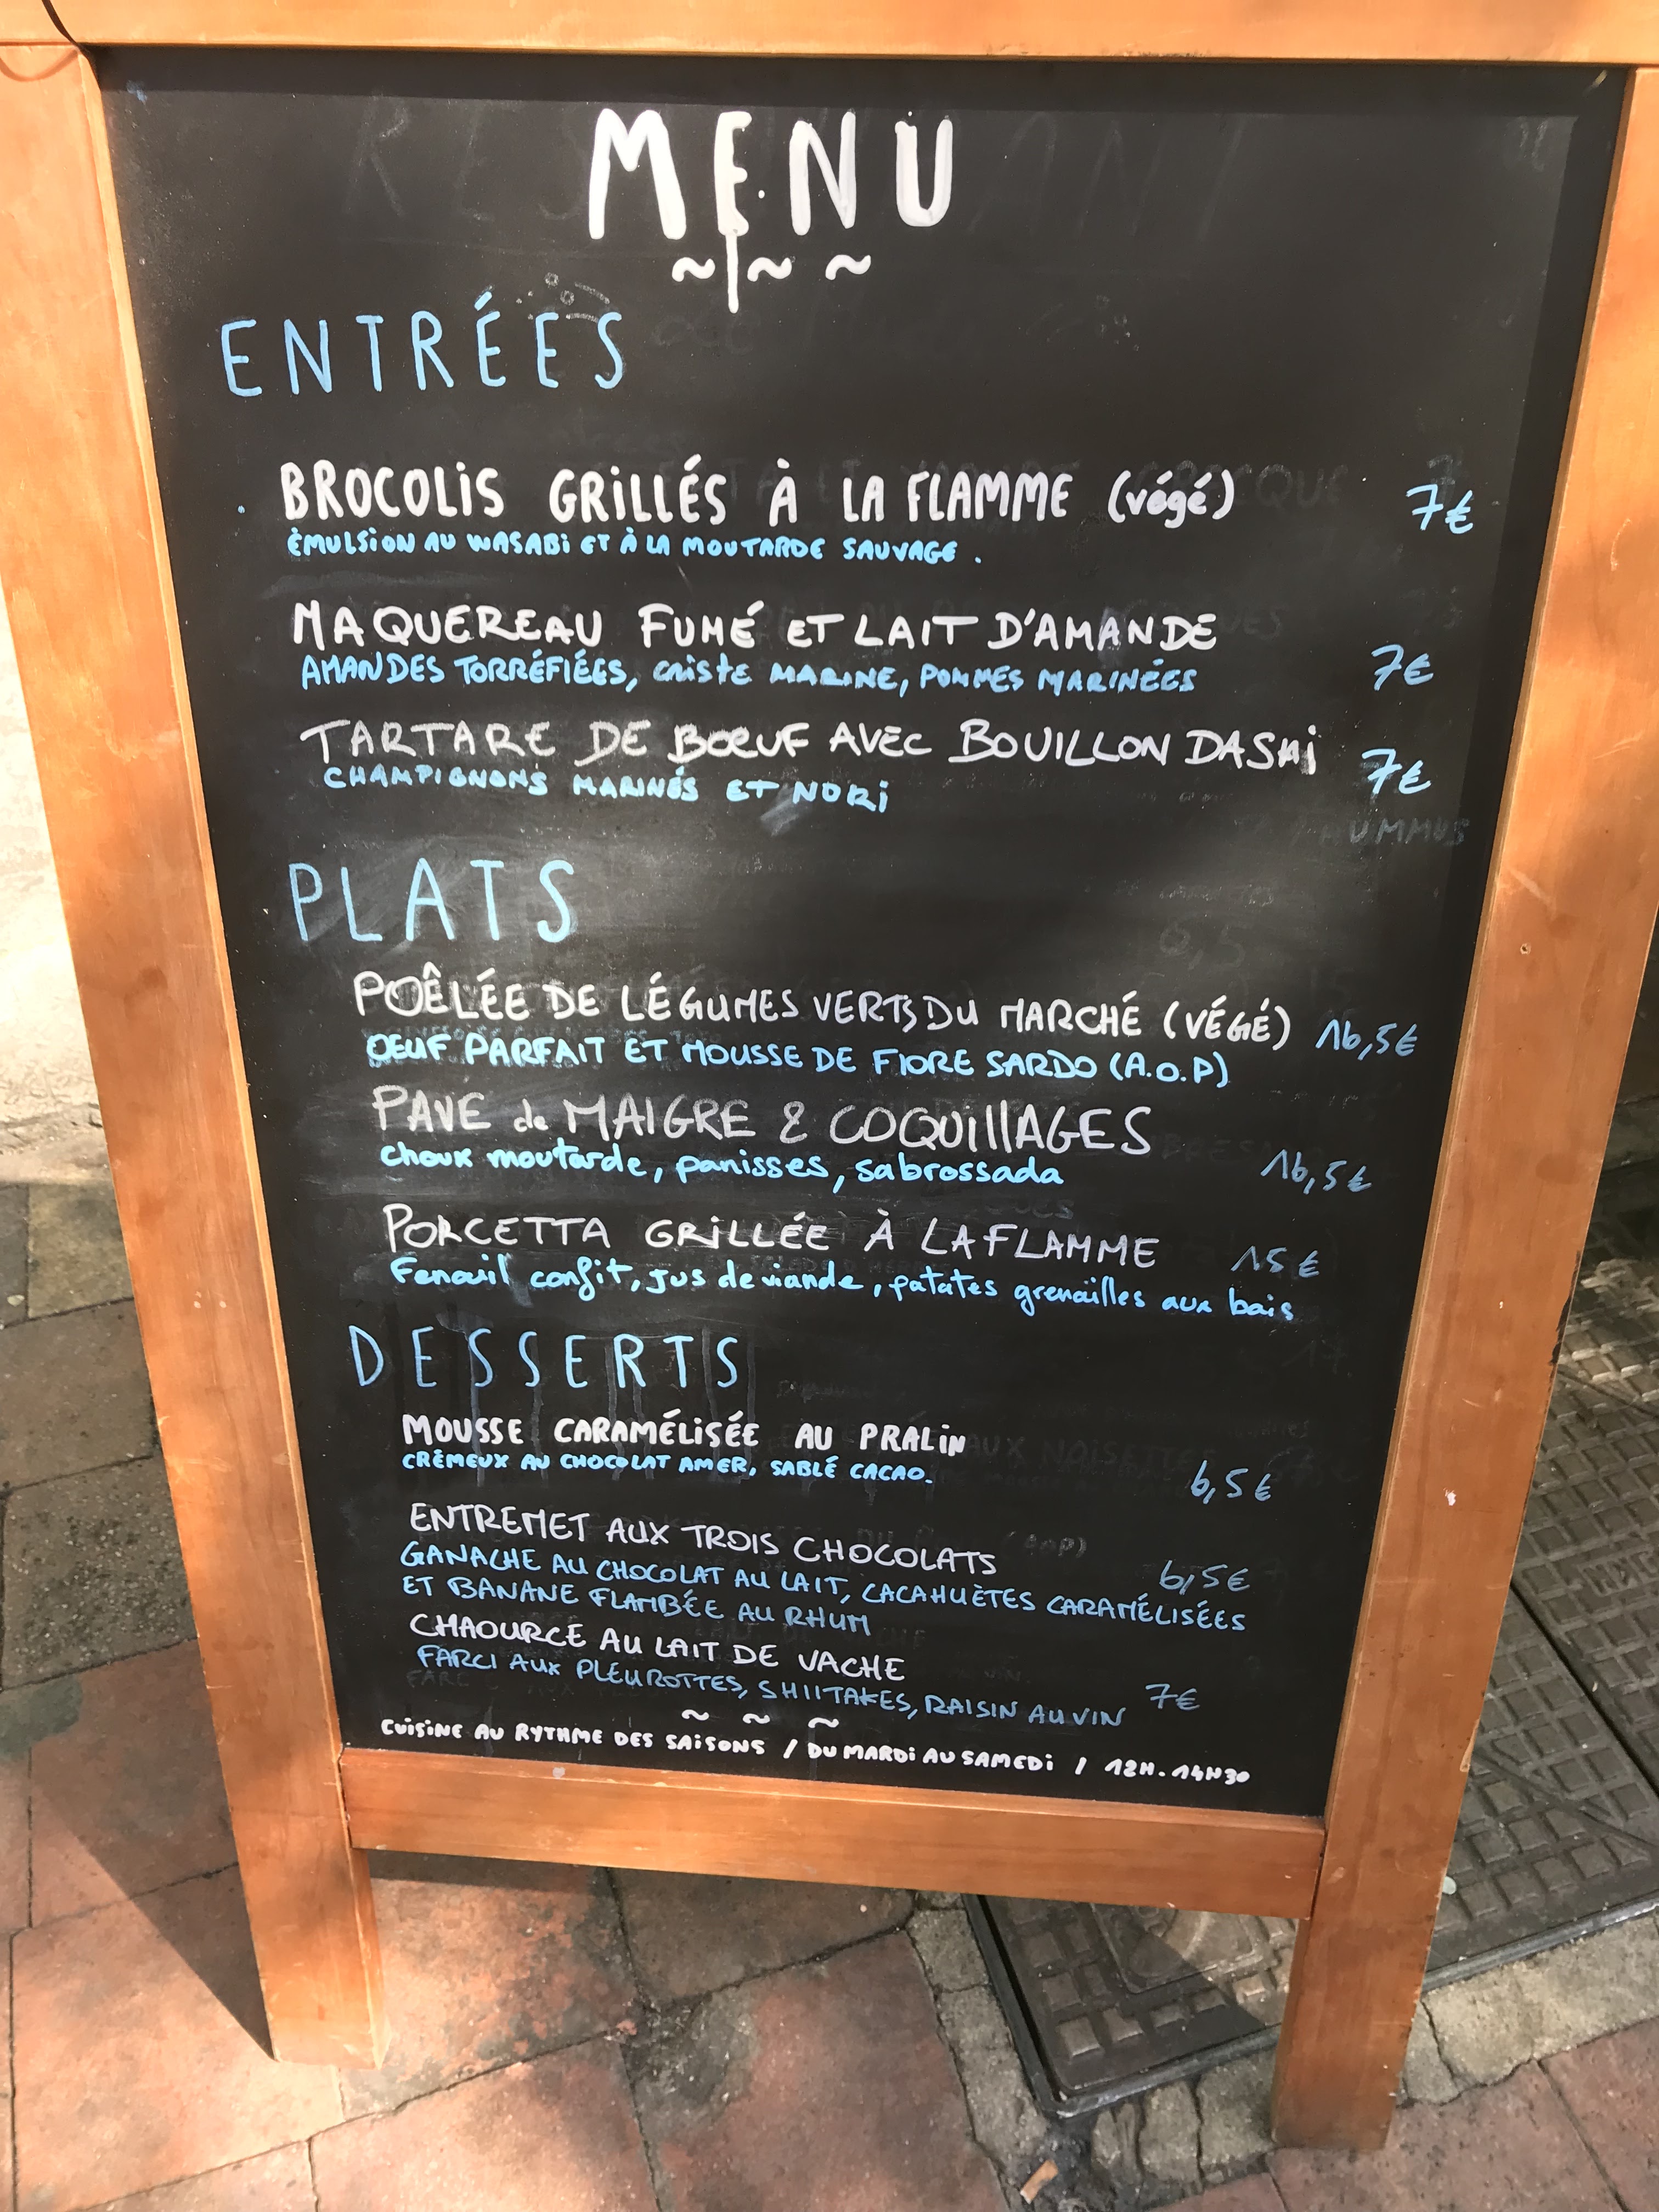 MENU
~ ~ ~
ENTRÉES
BROCOLIS GRILLÉS À LA FLAMME (végé) 7€
ÉMULSION AU WASABI ET À LA MOUTARDE SAUVAGE.
MAQUEREAU FUMÉ ET LAIT D'AMANDE
AMANDES TORRÉFIÉES, CRISTE MARINE, POMMES MARINÉES 7€
TARTARE DE BŒUF AVEC BOUILLON DASHI 7€
CHAMPIGNONS MARINÉS ET NORI
PLATS
POÊLÉE DE LÉGUMES VERTS DU MARCHÉ (VÉGÉ) 16,5€
OEUF PARFAIT ET MOUSSE DE FIORE SARDO (A.O.P)
PAVE de MAIGRE & COQUILLAGES
choux moutarde, panisses, sabrossada 16,5€
PORCETTA GRILLÉE À LA FLAMME 15€
Fenouil confit, jus de viande, patates grenailles aux bais
DESSERTS
MOUSSE CARAMÉLISÉE AU PRALIN
CRÉMEUX AU CHOCOLAT AMER, SABLÉ CACAO. 6,5€
ENTREMET AUX TROIS CHOCOLATS 6,5€
GANACHE AU CHOCOLAT AU LAIT, CACAHUÈTES CARAMÉLISÉES
ET BANANE FLAMBÉE AU RHUM
CHAOURCE AU LAIT DE VACHE
FARCI AUX PLEUROTTES, SHIITAKES, RAISIN AU VIN 7€
~ ~ ~
CUISINE AU RYTHME DES SAISONS / DU MARDI AU SAMEDI / 12H-14H30